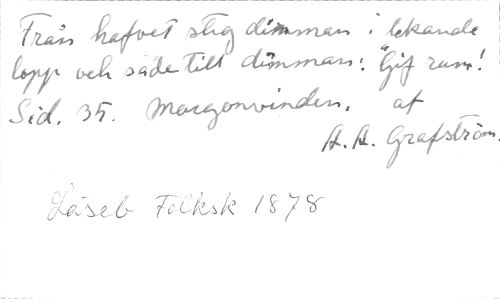 Från hafvet steg dimman i lekande
lopp och sade till dimman: "Gif rum!
Sid. 35. Morgonvinden. af
A. A. Grafström.
Läseb Folksk 1878